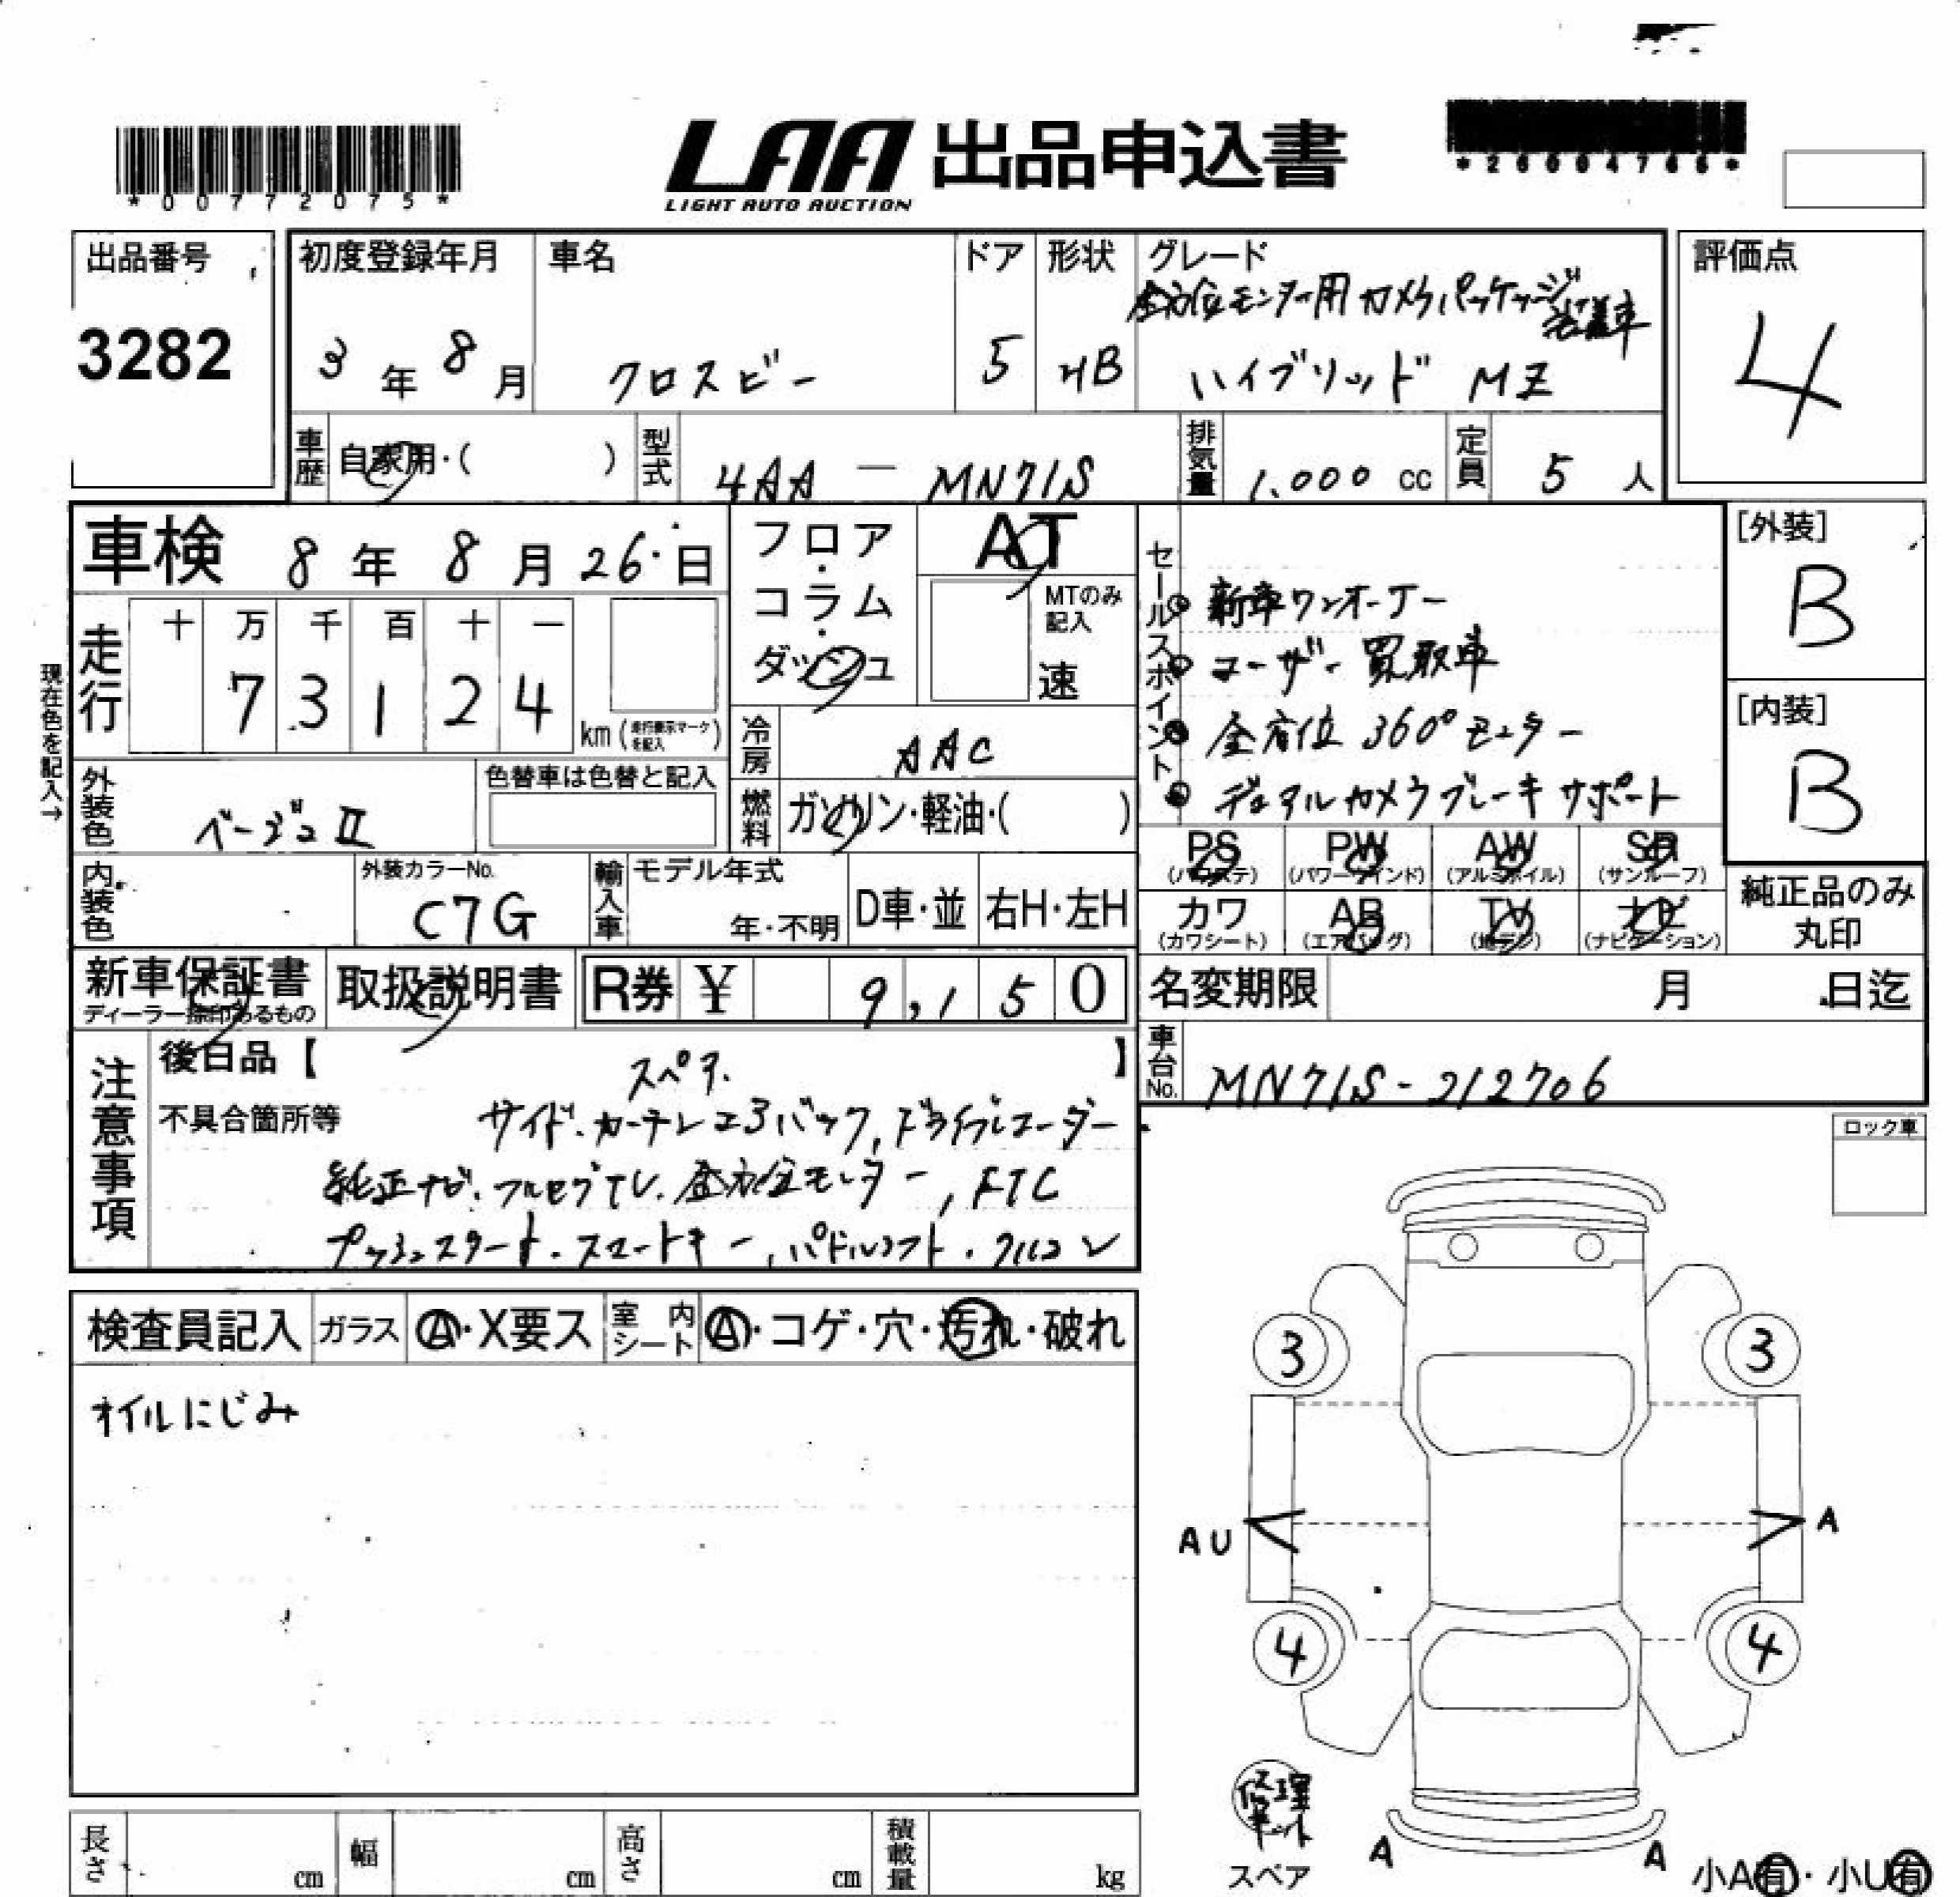 *00772075*
LAA 出品申込書
LIGHT AUTO AUCTION
*26004766*
出品番号
3282
初度登録年月
3年 8月
車名
クロスビー
ドア
5
形状
HB
グレード
全方位モニター用カメラパッケージ装着車
ハイブリッド MZ
評価点
4
車歴 自家用・( )
型式 4AA — MN71S
排気量 1.000 cc
定員 5 人
車検 8年 8月 26日
フロア・コラム・ダッシュ
AT
MTのみ記入
速
現在色を記入→
走行
十 万 千 百 十 一
7 3 1 2 4
km (走行表示マークを記入)
冷房 AAC
外装色 ベージュII
色替車は色替と記入
燃料 ガソリン・軽油・( )
内装色
外装カラーNo.
C7G
輸入車
モデル年式
年・不明
D車・並
右H・左H
セールスポイント
新車ワンオーナー
ユーザー買取車
全方位 360°モニター
デュアルカメラブレーキサポート
[外装]
B
[内装]
B
PS (パワステ)
PW (パワーウインド)
AW (アルミホイル)
SR (サンルーフ)
カワ (カワシート)
AB (エアバッグ)
TV (地デジ)
ナビ (ナビゲーション)
純正品のみ丸印
新車保証書
ディーラー捺印あるもの
取扱説明書
R券 ¥ 9,150
名変期限 月 日迄
車台No. MN71S-212706
注意事項
後日品【 スペア. 】
不具合箇所等
サイド・カーテンエアバック, ドライブレコーダー
純正ナビ、フルセグTV. 全方位モニター, ETC
プッシュスタート・スマートキー, パドルシフト・クルコン
ロック車
検査員記入
ガラス A・X要ス
室内シート A・コゲ・穴・汚れ・破れ
オイルにじみ
3
3
AU
A
4
4
修理キット
スペア
A
A
小A有・小U有
長さ cm
幅 cm
高さ cm
積載量 kg